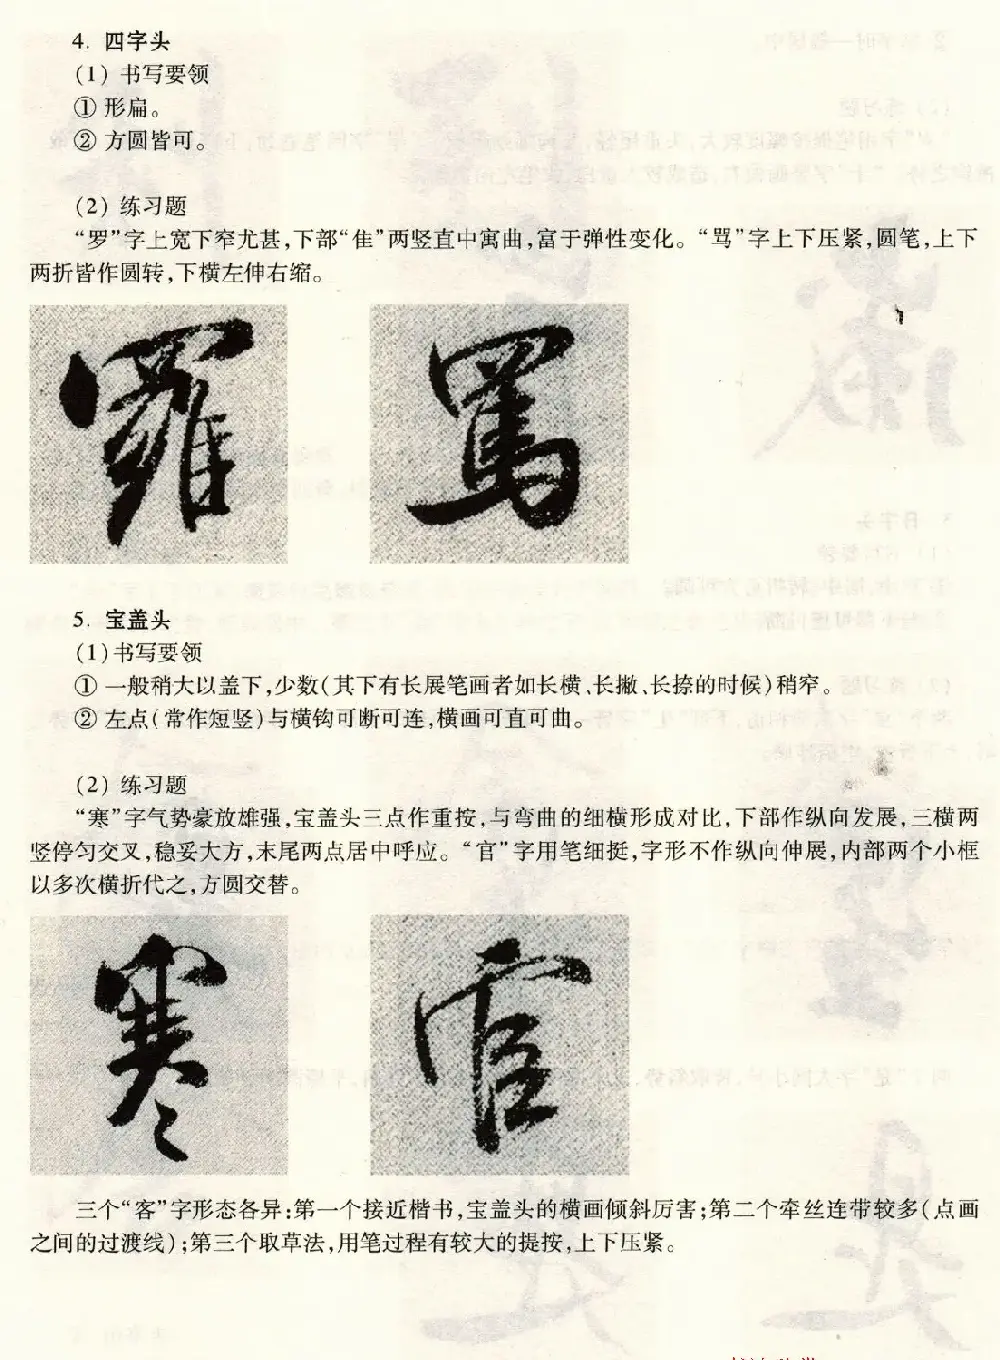 4. 四字头
(1) 书写要领
① 形扁。
② 方圆皆可。
(2) 练习题
“罗”字上宽下窄尤甚,下部“隹”两竖直中寓曲,富于弹性变化。“骂”字上下压紧,圆笔,上下
两折皆作圆转,下横左伸右缩。
羅 罵
5. 宝盖头
(1)书写要领
① 一般稍大以盖下,少数(其下有长展笔画者如长横、长撇、长捺的时候)稍窄。
② 左点(常作短竖)与横钩可断可连,横画可直可曲。
(2) 练习题
“寒”字气势豪放雄强,宝盖头三点作重按,与弯曲的细横形成对比,下部作纵向发展,三横两
竖停匀交叉,稳妥大方,末尾两点居中呼应。“官”字用笔细挺,字形不作纵向伸展,内部两个小框
以多次横折代之,方圆交替。
寒 官
三个“客”字形态各异:第一个接近楷书,宝盖头的横画倾斜厉害;第二个牵丝连带较多(点画
之间的过渡线);第三个取草法,用笔过程有较大的提按,上下压紧。